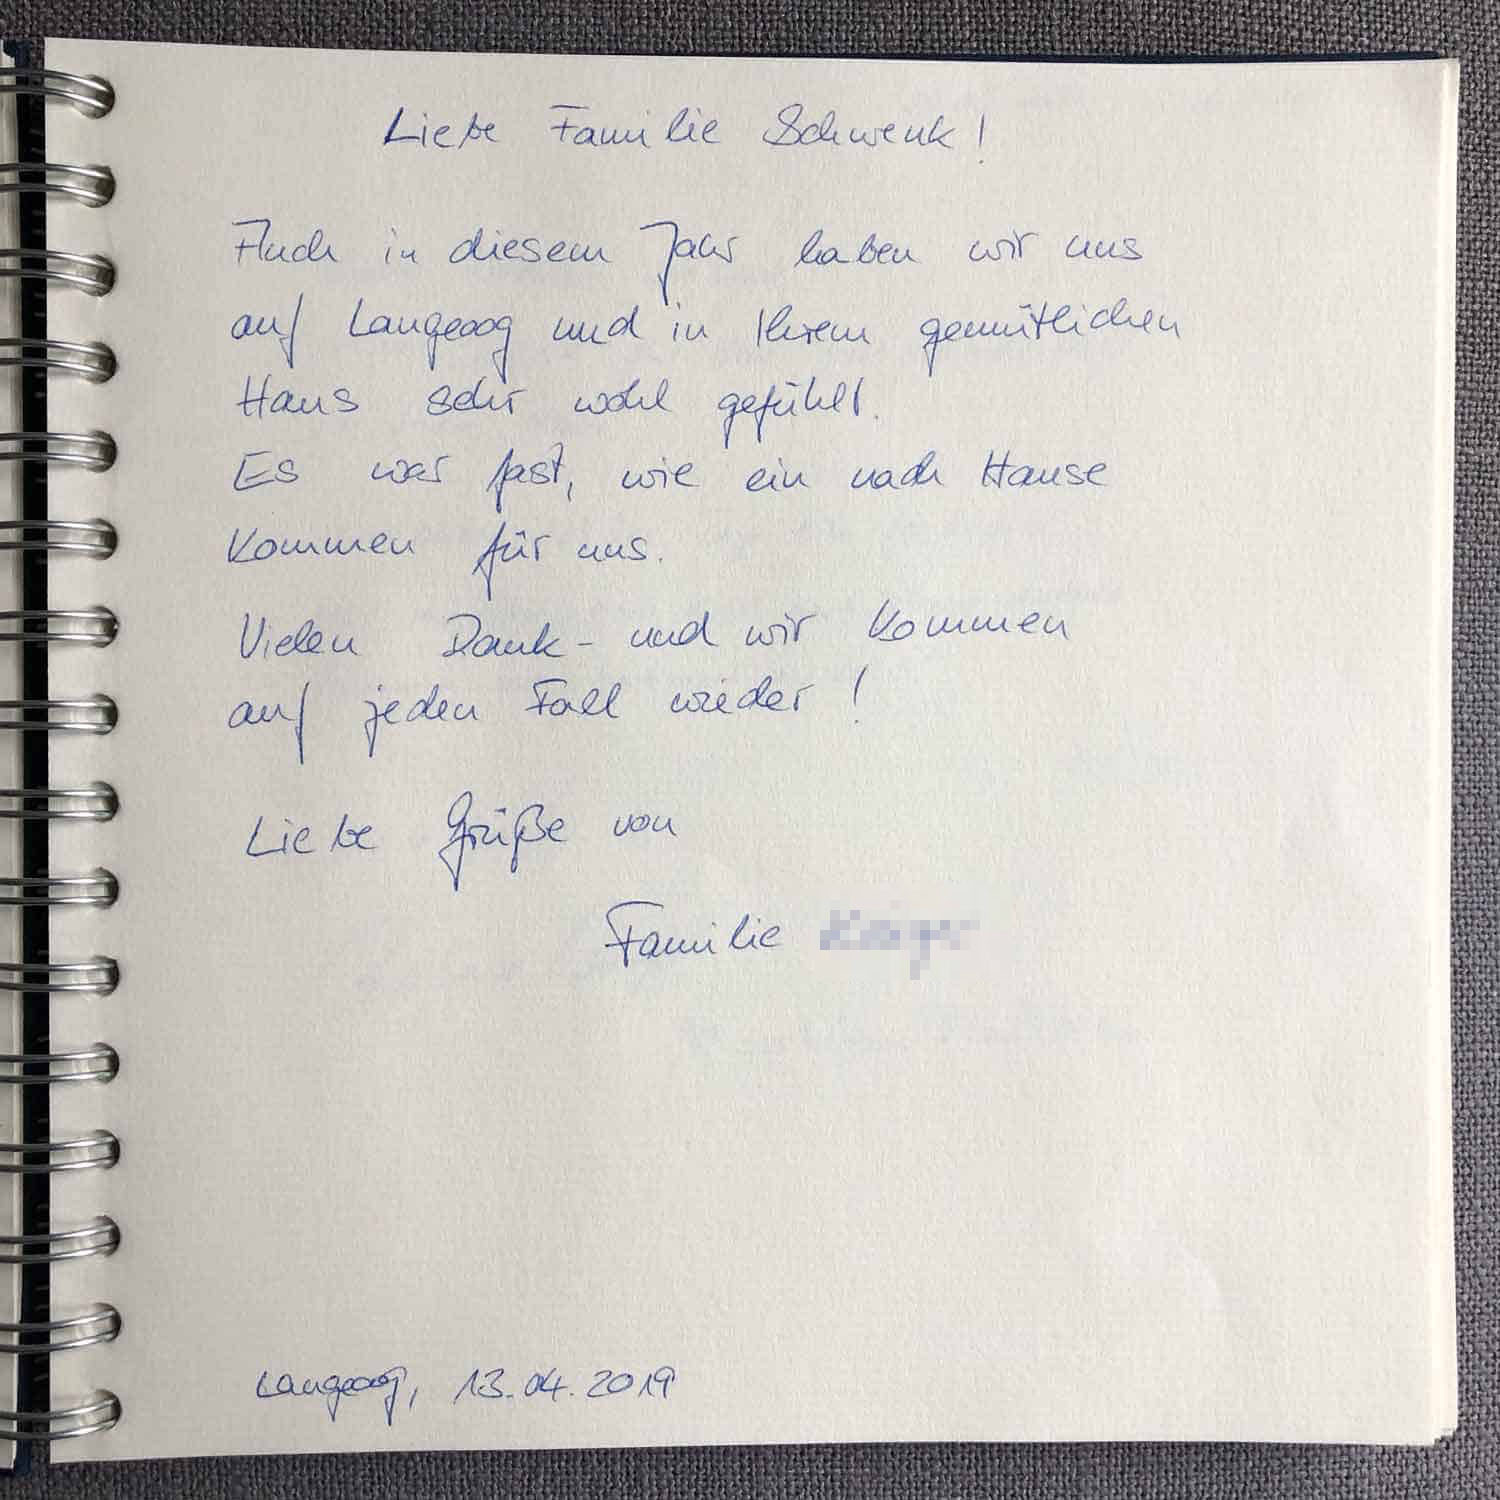 Liebe Familie Schwenk!
Auch in diesem Jahr haben wir uns
auf Langeoog und in Ihrem gemütlichen
Haus sehr wohl gefühlt.
Es war fast, wie ein nach Hause
Kommen für uns.
Vielen Dank - und wir kommen
auf jeden Fall wieder!
Liebe Grüße von
Familie
Langeoog, 13.04.2019